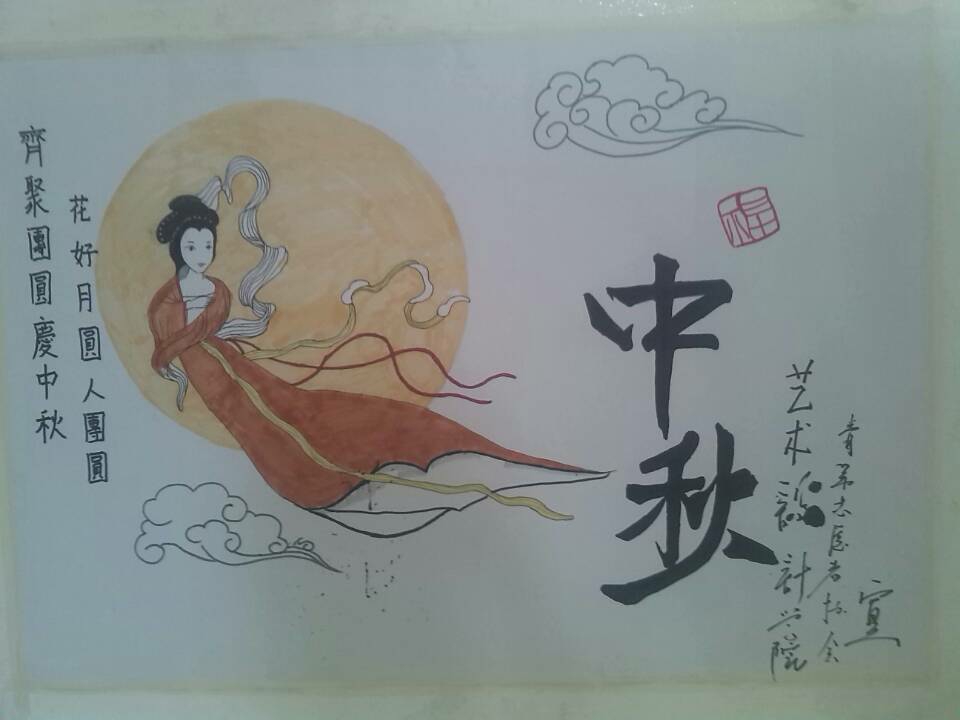 齊聚團圓慶中秋
花好月圓人團圓
福
中秋
艺术設計学院
青年志愿者协会
宣